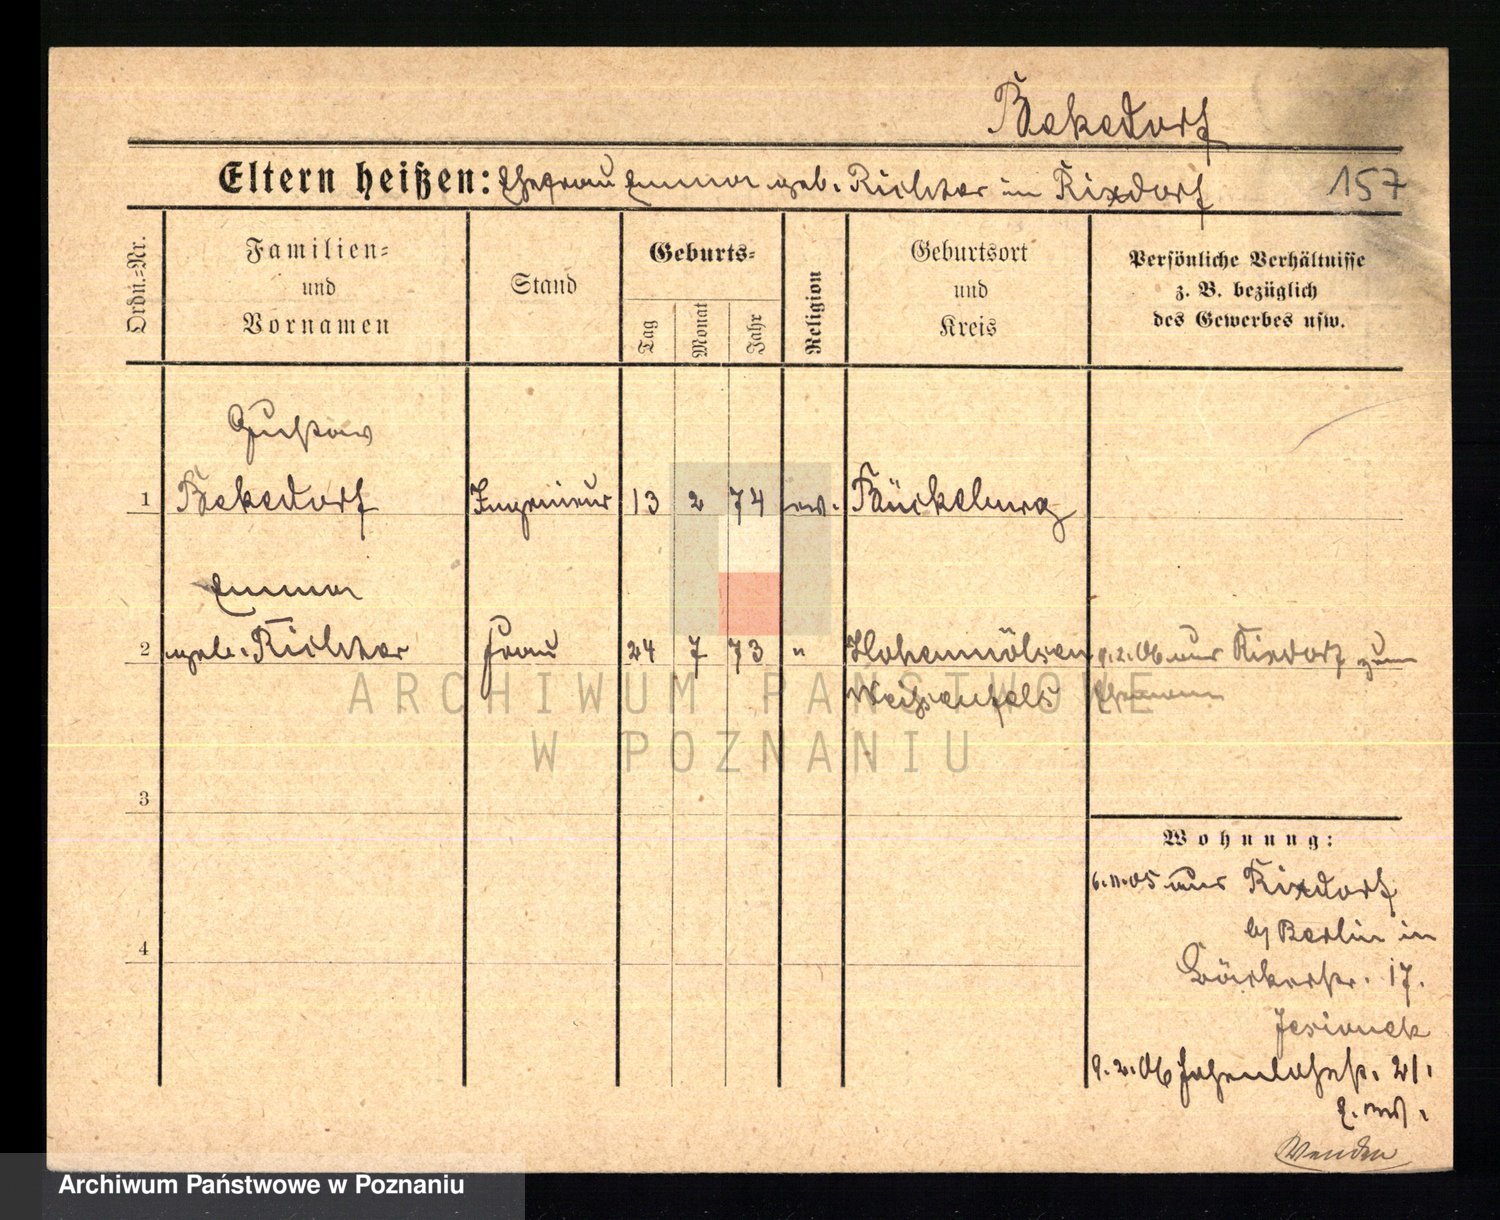 Bekedorf
Eltern heißen: Ehefrau Emma geb. Richter in Rixdorf
157
Ordn.=Nr.
Familien=
und
Vornamen
Stand
Geburts=
Tag
Monat
Jahr
Religion
Geburtsort
und
Kreis
Persönliche Verhältnisse
z. B. bezüglich
des Gewerbes usw.
Gustav
1 Bekedorf Ingenieur 13 2 74 ev. Bückeburg
Emma
2 geb. Richter Frau 24 7 73 " Hohenmölsen 9.2.06 aus Rixdorf zum
Weißenfels Ehemann
ARCHIWUM PAŃSTWOWE
W POZNANIU
3
4
Wohnung:
6.11.05 aus Rixdorf
b/ Berlin in
17.
Jesionek
9.2.06 Hohenlohestr. 21.
Wenden
Archiwum Państwowe w Poznaniu